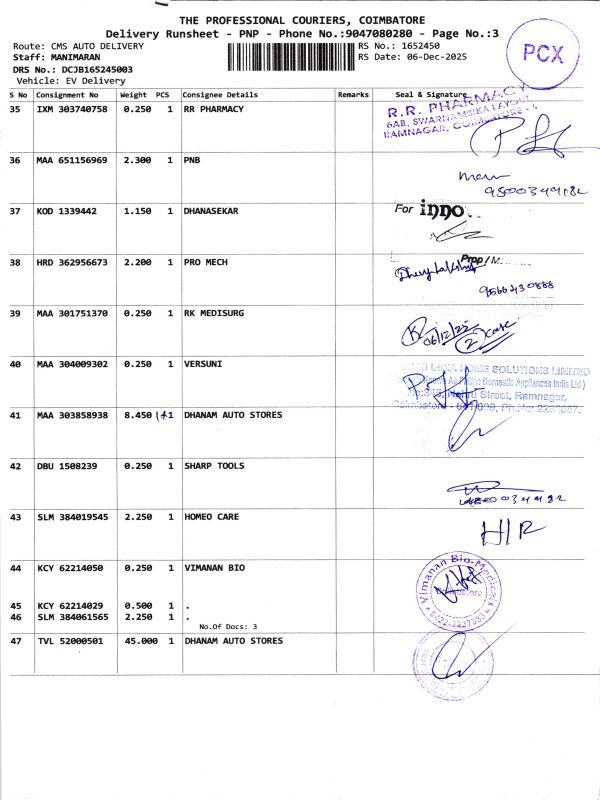 THE PROFESSIONAL COURIERS, COIMBATORE
Delivery Runsheet - PNP - Phone No.:9047080280 - Page No.:3
Route: CMS AUTO DELIVERY RS No.: 1652450
Staff: MANIMARAN RS Date: 06-Dec-2025
DRS No.: DCJB165245003
Vehicle: EV Delivery
PCX
S No Consignment No Weight PCS Consignee Details Remarks Seal & Signature
35 IXM 303740758 0.250 1 RR PHARMACY
R.R. PHARMACY
6AB, SWARNAMBIKA LAYOUT
RAMNAGAR, COIMBATORE - 9
36 MAA 651156969 2.300 1 PNB
37 KOD 1339442 1.150 1 DHANASEKAR For inno
38 HRD 362956673 2.200 1 PRO MECH Prop/M
39 MAA 301751370 0.250 1 RK MEDISURG
06/12/22
40 MAA 304009302 0.250 1 VERSUNI
HOME SOLUTIONS LIMITED
Domestic Appliances India Ltd.)
Street, Ramnagar,
Coimbatore - 641 009, Ph.No:
41 MAA 303858938 8.450 1 DHANAM AUTO STORES
42 DBU 1508239 0.250 1 SHARP TOOLS
43 SLM 384019545 2.250 1 HOMEO CARE
H/R
44 KCY 62214050 0.250 1 VIMANAN BIO
Vimanan Bio-Medicals
Coimbatore
45 KCY 62214029 0.500 1 .
46 SLM 384061565 2.250 1 .
No.Of Docs: 3
47 TVL 52000501 45.000 1 DHANAM AUTO STORES